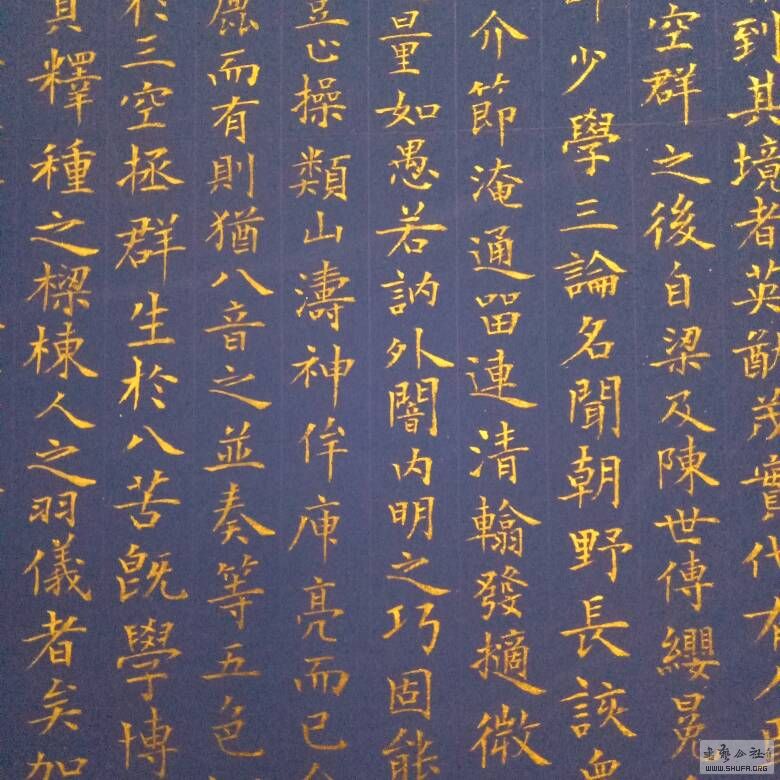 到其境者英猷茂實代有人
空群之後自梁及陳世傳纓冕
少學三論名聞朝野長該衆
介節淹通留連清翰發擿微
量如愚若訥外闇内明之巧固能
心操類山濤神侔庾亮而已
而有則猶八音之並奏等五色
於三空拯群生於八苦既學博
釋種之樑棟人之羽儀者矣加
书艺公社
WWW.SHUFA.ORG